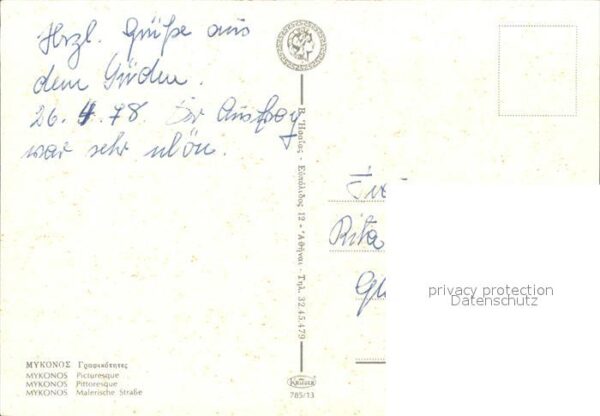 Hrzl. Grüße aus
dem Süden.
26. 4. 78. Der Ausflug
war sehr schön.
Β. Ἡραῖος - Εὐπόλιδος 12 - Ἀθῆναι - Τηλ. 3245.479
Rita
privacy protection
Datenschutz
ΜΥΚΟΝΟΣ Γραφικότητες
MYKONOS Picturesque
MYKONOS Pittoresque
MYKONOS Malerische Straße
KRÜGER
785/13